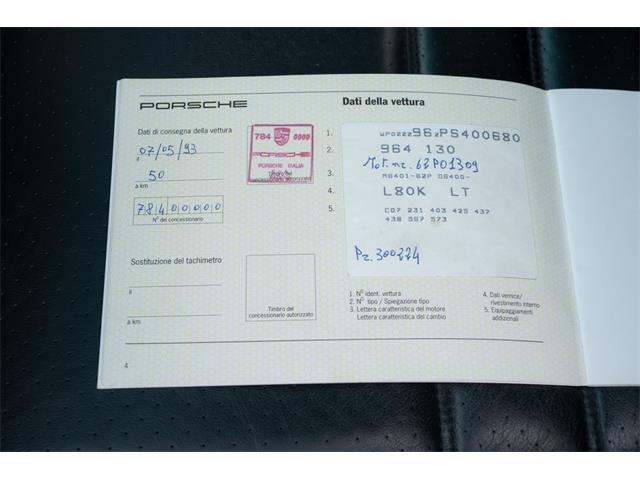 PORSCHE
Dati di consegna della vettura
il 07/05/93
50
a km
784 00000
No del concessionario
784 0000
PORSCHE
PORSCHE ITALIA
concessionario autorizzato
Sostituzione del tachimetro
il
a km
Timbro del
concessionario autorizzato
4
Dati della vettura
1. WP0ZZZ96ZPS400680
2. 964 130
Mot. nr. 62P01309
3. M6401-62P
4. L80K LT
5. C07 231 403 425 437
438 567 573
Pz. 300224
1. No ident. vettura
2. No tipo / Spiegazione tipo
3. Lettera caratteristica del motore
Lettera caratteristica del cambio
4. Dati vernice/
rivestimento interno
5. Equipaggiamenti
addizionali